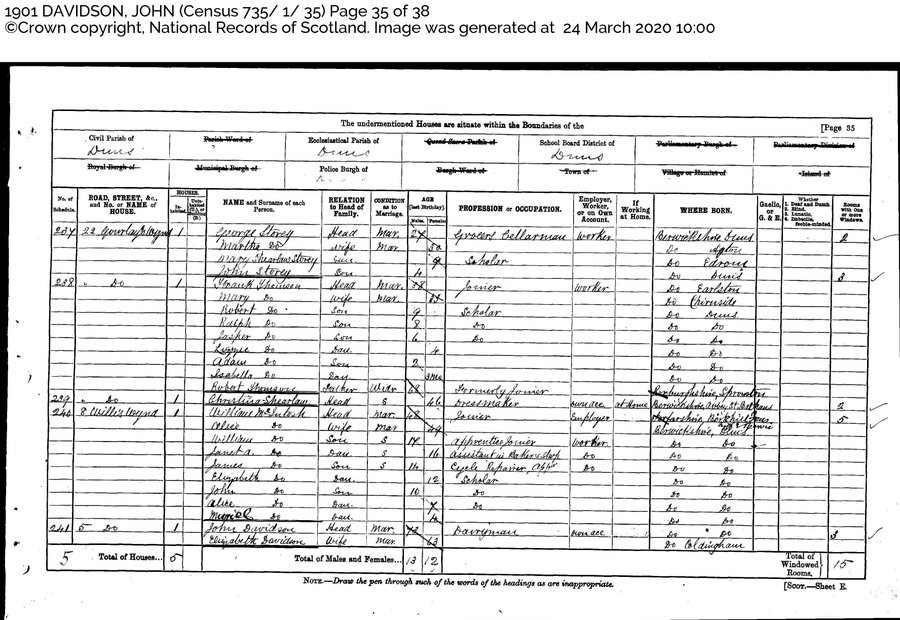 1901 DAVIDSON, JOHN (Census 735/ 1/ 35) Page 35 of 38
©Crown copyright, National Records of Scotland. Image was generated at 24 March 2020 10:00
The undermentioned Houses are situate within the Boundaries of the [Page 35
Civil Parish of Parish Ward of Ecclesiastical Parish of Quoad Sacra Parish of School Board District of Parliamentary Burgh of Parliamentary Division of
Duns Duns Duns
Royal Burgh of Municipal Burgh of Police Burgh of Burgh Ward of Town of Village or Hamlet of Island of
No. of Schedule. ROAD, STREET, &c., and No. or NAME of HOUSE. HOUSES. Inhabited. NAME and Surname of each Person. RELATION to Head of Family. CONDITION as to Marriage. AGE (last Birthday). Males. Females. PROFESSION or OCCUPATION. Employer, Worker, or on Own Account. If Working at Home. WHERE BORN. Gaelic, or G. & E. Whether 1. Deaf and Dumb. 2. Blind. 3. Lunatic. 4. Imbecile, feeble-minded. Rooms with one or more Windows.
237 22 1 George Storey Head Mar. Grocers Cellarman Worker Berwickshire Duns 2
Martha Do Wife Mar. 30 Do
Mary Shearlaw Storey 9 Scholar Do Edrom
John Storey Son 4 Do Duns 3
238 " Do 1 Frank Thomson Head Mar. 38 Joiner Worker Do Earlston
Mary Do Wife Mar. Do Chirnside
Robert Do Son 9 Scholar Do Duns
Ralph Do Son 8 Do Do Do
Jasper Do Son 6 Do Do Do
Do Dau. 4 Do Do
Adam Do Son 2 Do Do
Isabella Do Dau. 3mo Do Do
Robert Thomson Father Widr 68 Formerly Joiner Roxburghshire, Sprouston
239 " Do 1 Christina Shearlaw Head S 46 Dressmaker own acc at Home Berwickshire, Abbey St Bathans 2
240 8 Willis Wynd 1 William McIntosh Head Mar. 48 Joiner Employer 5
Alice Do Wife Mar 49 Berwickshire, Duns
William Do Son S 19 Apprentice Joiner Worker Do Do
Janet A. Do Dau. S 16 Assistant in Bakers shop Do Do Do
James Do Son S 14 Cycle Repairer, Do Do Do
Elizabeth Do Dau. 12 Scholar Do Do
John Do Son 10 Do Do Do
Alice Do Dau. 7 Do Do Do
Muriel Do Dau Do Do
241 5 Do 1 John Davidson Head Mar. 73 Dairyman own acc Do Do 3
Elizabeth Davidson Wife Mar. 63 Do Coldingham
5 Total of Houses... 5 Total of Males and Females... 13 12 Total of Windowed Rooms, 15
NOTE.—Draw the pen through such of the words of the headings as are inappropriate. [SCOT.—Sheet E.